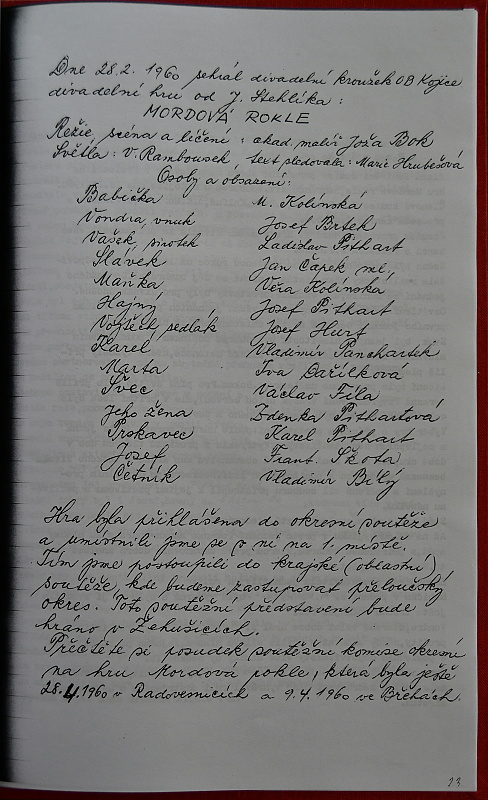 Dne 28.2. 1960 sehrál divadelní kroužek OB Kojice
divadelní hru od J. Stehlíka:
MORDOVÁ ROKLE
Režie, scéna a líčení: akad. malíř Joža Bok
Světla: V. Rambousek, text sledovala: Marie Hrubešová
Osoby a obsazení:
Babička M. Kolínská
Vondra, vnuk Josef Brtek
Vašek, sirotek Ladislav Pithart
Slávek Jan Čapek ml.
Mařka Věra Kolínská
Hajný Josef Pithart
Vojtěch, sedlák Josef Hurt
Karel Vladimír Panchartek
Marta Iva Dařílková
Švec Václav Fila
Jeho žena Zdenka Pithartová
Prskavec Karel Pithart
Josef Frant. Škota
Četník Vladimír Bílý
Hra byla přihlášena do okresní soutěže
a umístnili jsme se v ní na 1. místě.
Tím jsme postoupili do krajské (oblastní)
soutěže, kde budeme zastupovat přeloučský
okres. Toto soutěžní představení bude
hráno v Žehušicích.
Přečtěte si posudek soutěžní komise okresní
na hru Mordová rokle, která byla ještě
28.4.1960 v Radovesnicích a 9.4.1960 ve Břehách.